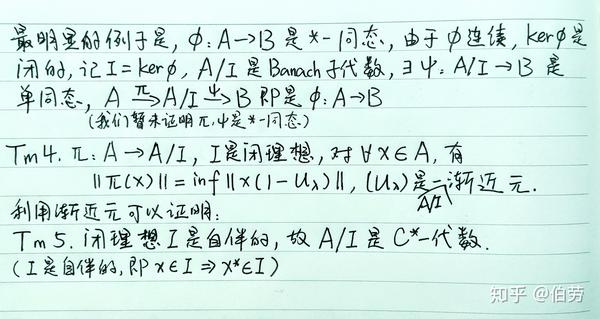 最明显的例子是, φ: A→B 是 *-同态, 由于 φ 连续, kerφ是
闭的, 记 I = kerφ, A/I 是 Banach 子代数, ∃ψ: A/I → B 是
单同态, A →π A/I →ψ B 即是 φ: A→B
(我们暂未证明 π,ψ是 *-同态)
Tm4. π: A → A/I, I是闭理想, 对 ∀x∈A, 有
‖π(x)‖ = inf‖x(1-Uλ)‖, (Uλ)是一渐近元.
A/I
利用渐近元可以证明:
Tm5. 闭理想 I 是自伴的, 故 A/I 是 C*-代数.
(I 是自伴的, 即 x∈I ⇒ x*∈I)
知乎 @伯劳